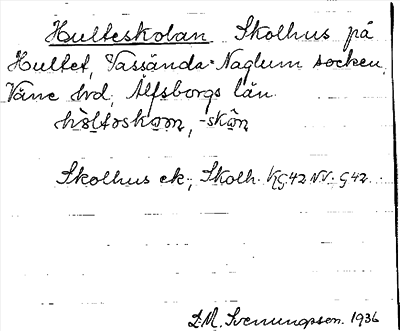 Hulteskolan Skolhus på
Hultet, Vassända-Naglum socken,
Väne hd, Älfsborgs län.
Skolhus ek; Skolh. KG42 NV. G42.
D.M. Svenungsson. 1936